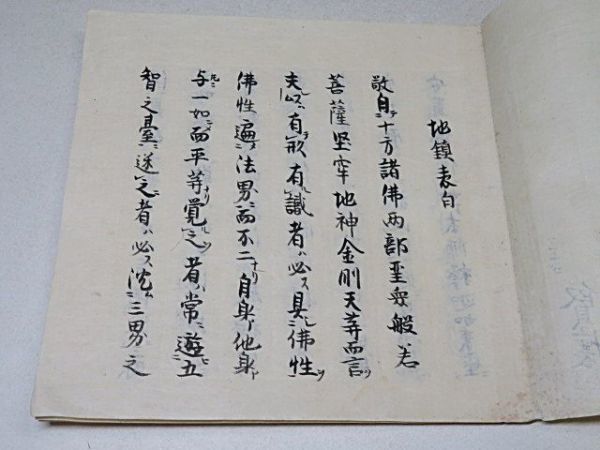 地鎮表白
敬自十方諸佛両部聖衆般若
菩薩坚牢地神金剛天等而言
夫以有形有識者ハ必ス具佛性
佛性遍法界而不二ナリ自身他身
与一如而平等ナリ覺之者ハ常ニ遊五
智之臺ニ迷之者ハ必ス沈三界之